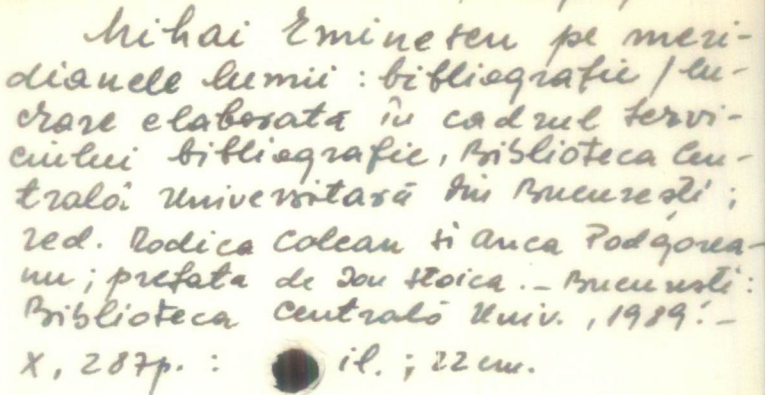 Mihai Eminescu pe meri-
dianele lumii : bibliografie / lu-
crare elaborată în cadrul servi-
ciului bibliografic, Biblioteca Cen-
trală Universitară din București ;
red. Rodica Colcan și Anca Podgorea-
nu ; prefata de Ion Stoica. - București :
Biblioteca Centrală Univ., 1989. -
X, 287p. : il. ; 22 cm.